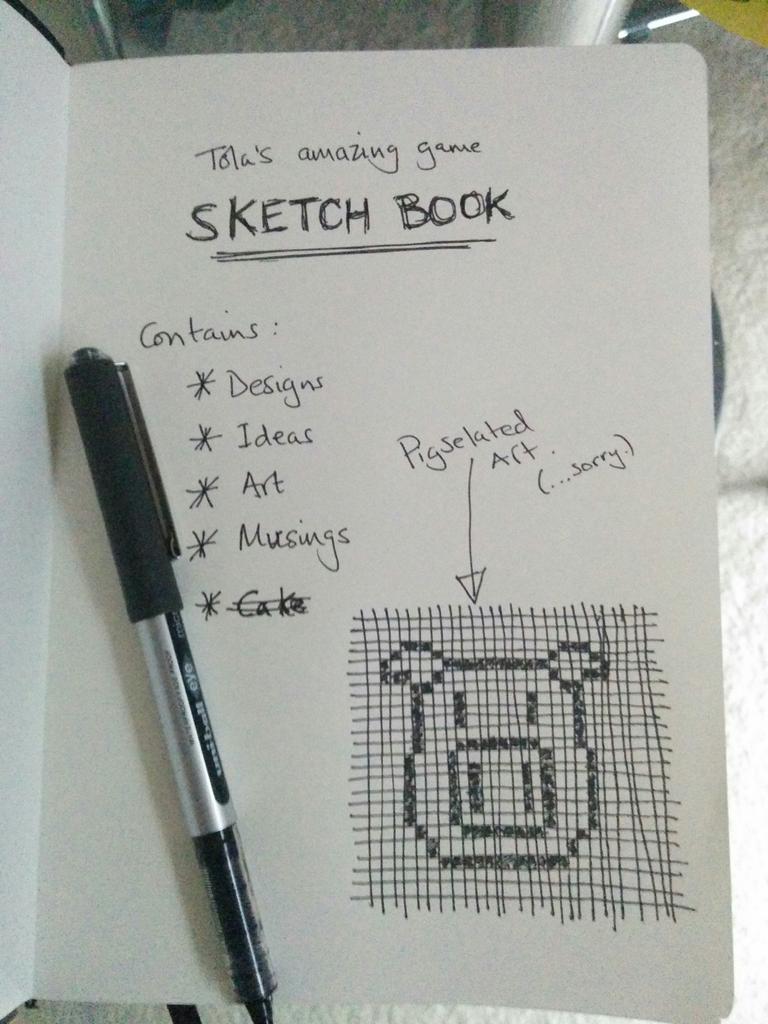 Tola's amazing game
SKETCH BOOK
Contains:
* Designs
* Ideas
* Art
* Musings
* Cake
Pigselated
Art.
(...sorry.)
uniball eye